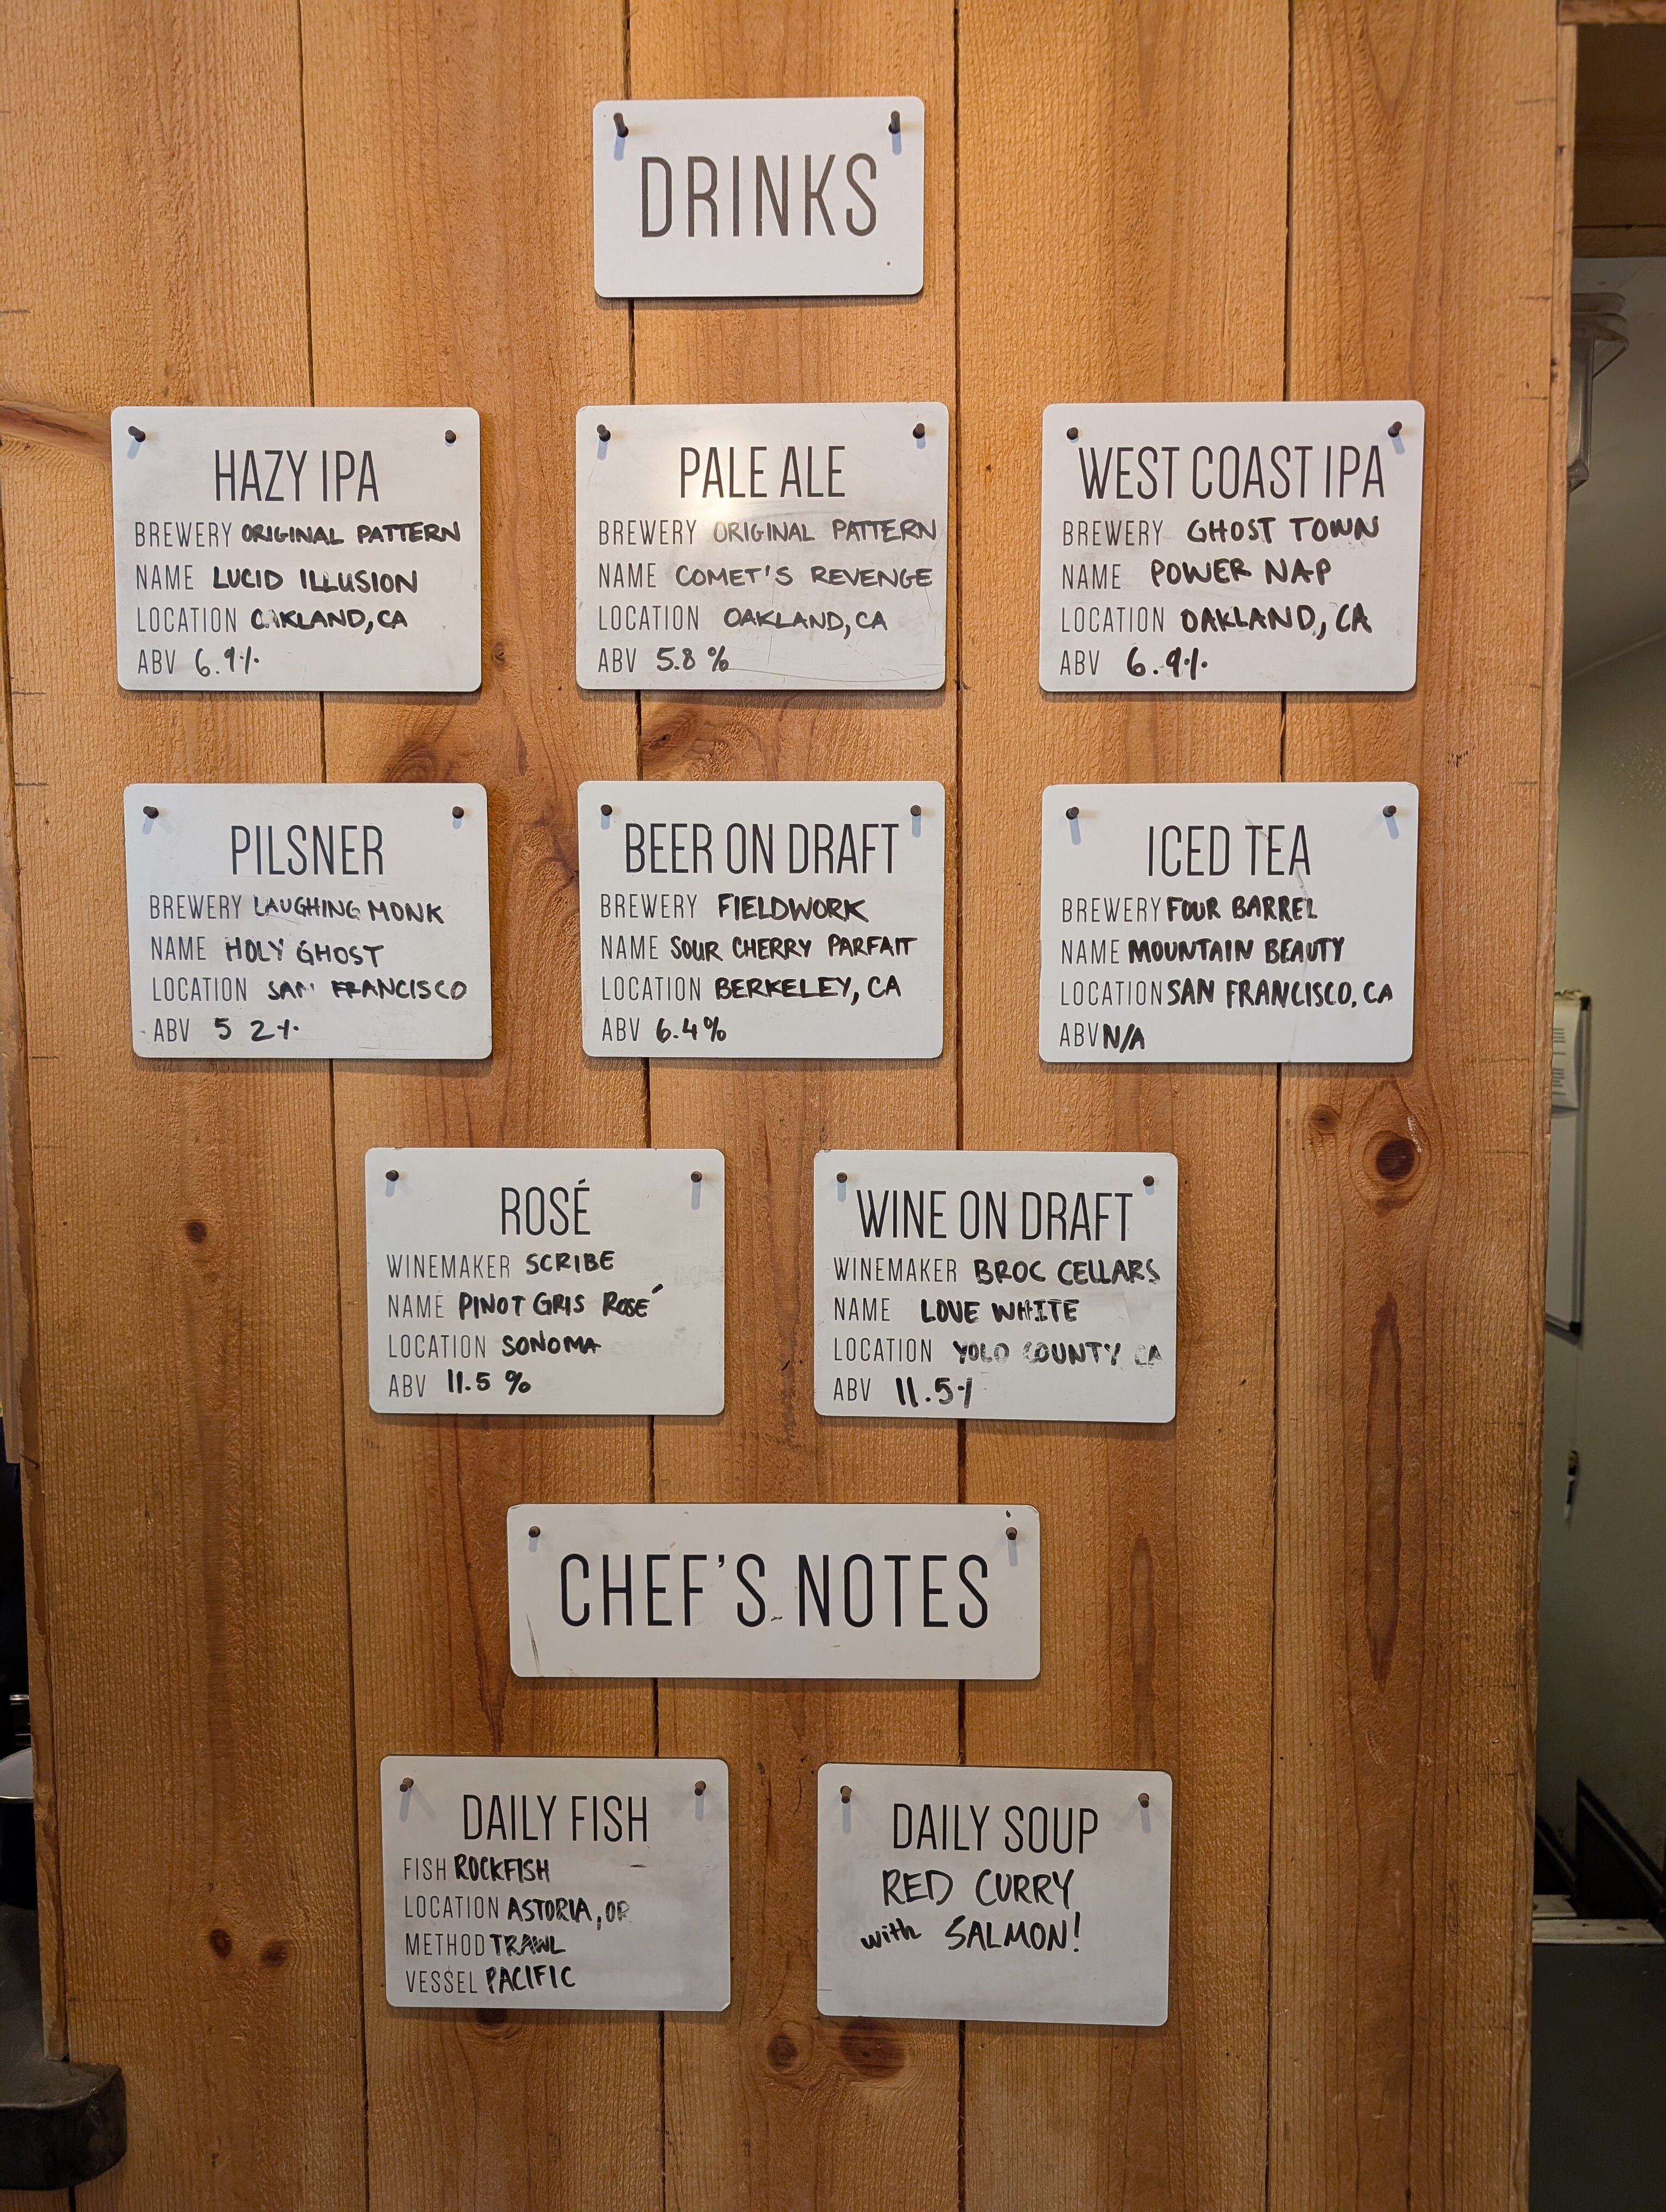 DRINKS
HAZY IPA
BREWERY ORIGINAL PATTERN
NAME LUCID ILLUSION
LOCATION OAKLAND, CA
ABV 6.9%
PALE ALE
BREWERY ORIGINAL PATTERN
NAME COMET'S REVENGE
LOCATION OAKLAND, CA
ABV 5.8%
WEST COAST IPA
BREWERY GHOST TOWN
NAME POWER NAP
LOCATION OAKLAND, CA
ABV 6.9%
PILSNER
BREWERY LAUGHING MONK
NAME HOLY GHOST
LOCATION SAN FRANCISCO
ABV 5 2%
BEER ON DRAFT
BREWERY FIELDWORK
NAME SOUR CHERRY PARFAIT
LOCATION BERKELEY, CA
ABV 6.4%
ICED TEA
BREWERY FOUR BARREL
NAME MOUNTAIN BEAUTY
LOCATION SAN FRANCISCO, CA
ABV N/A
ROSÉ
WINEMAKER SCRIBE
NAME PINOT GRIS ROSÉ
LOCATION SONOMA
ABV 11.5 %
WINE ON DRAFT
WINEMAKER BROC CELLARS
NAME LOVE WHITE
LOCATION YOLO COUNTY CA
ABV 11.5%
CHEF'S NOTES
DAILY FISH
FISH ROCKFISH
LOCATION ASTORIA, OR
METHOD TRAWL
VESSEL PACIFIC
DAILY SOUP
RED CURRY
with SALMON!